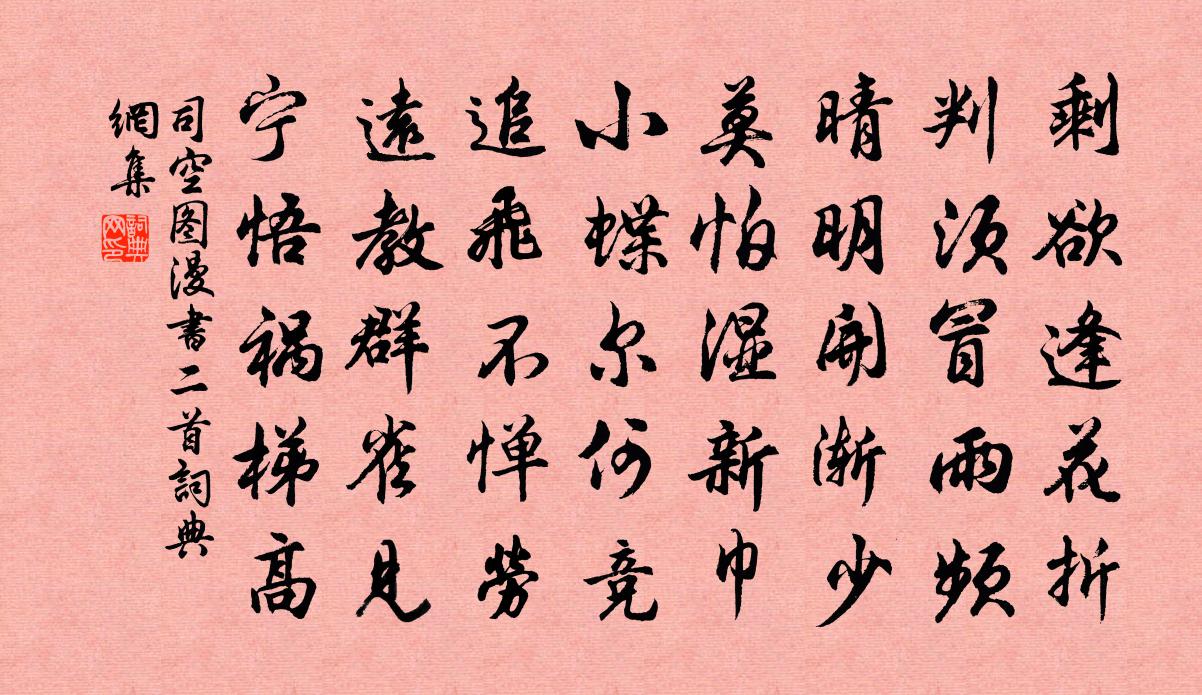 剩欲逢花折
判须冒雨频
晴明開渐少
莫怕湿新巾
小蝶尔何竞
追飛不惮勞
遠教群雀見
宁悟祸梯高
司空图漫書二首詞典
網集
詞典
网印